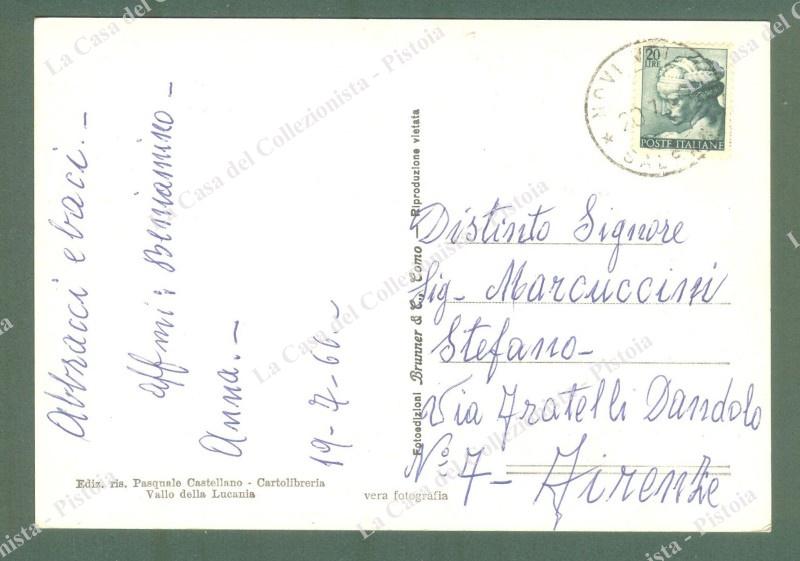 Abbracci e baci.—
affmi: Beniamino—
Anna.—
19-7-66—
Ediz. ris. Pasquale Castellano - Cartolibreria
Vallo della Lucania
vera fotografia
Fotoedizioni Brunner & C., Como — Riproduzione vietata
NOVI
20
SALERNO
20
LIRE
POSTE ITALIANE
Distinto Signore
Sig- Marcuccini
Stefano-
Via Fratelli Dandolo
N° 7- Firenze
La Casa del Collezionista - Pistoia